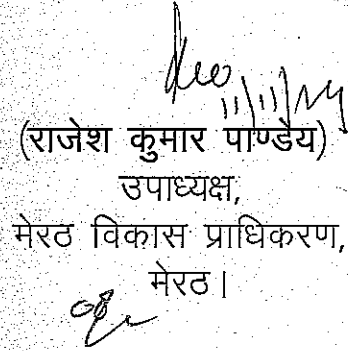 11/11/24
(राजेश कुमार पाण्डेय)
उपाध्यक्ष,
मेरठ विकास प्राधिकरण,
मेरठ।